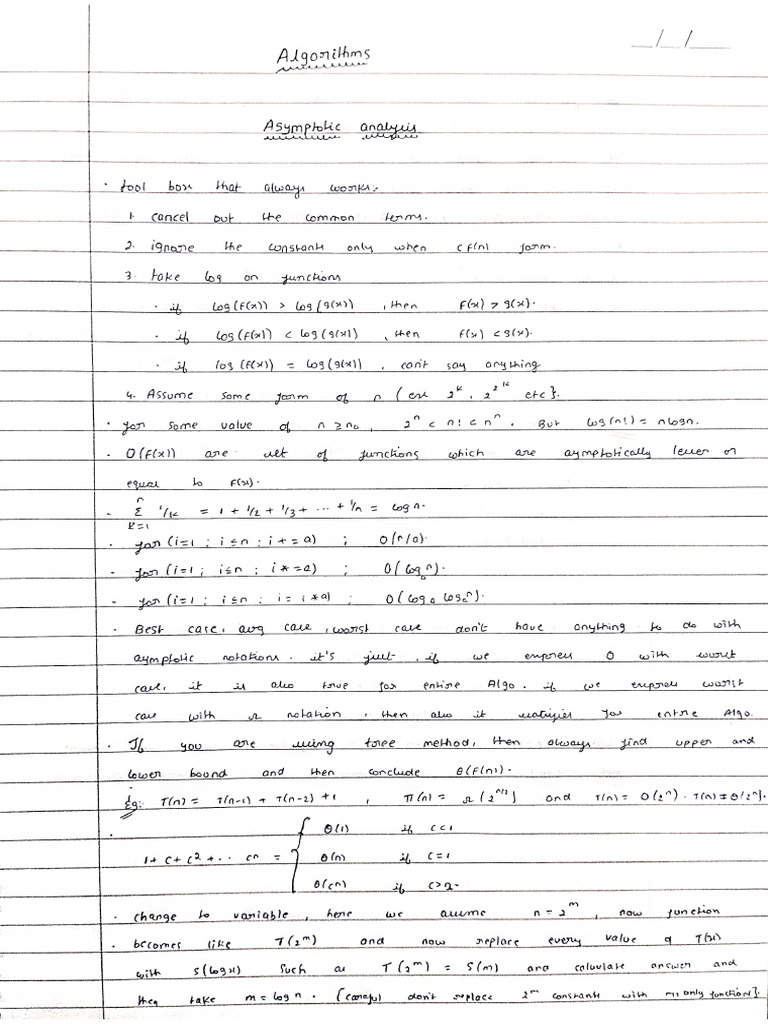 __/__/____
Algorithms
Asymptotic analysis
· tool box that always works:-
1. cancel out the common terms.
2. ignore the constants only when c f(n) form.
3. take log on functions
· if log(f(x)) > log(g(x)) , then f(x) > g(x).
· if log(f(x)) < log(g(x)) , then f(x) < g(x).
· if log(f(x)) = log(g(x)) , can't say anything
4. Assume some form of n (ex 2^k, 2^2^k etc).
· for some value of n ≥ n₀, 2^n < n! < n^n. But log(n!) = nlogn.
· O(f(x)) are set of functions which are asymptotically lesser or
equal to f(x).
· Σ_{k=1}^{n} 1/k = 1 + 1/2 + 1/3 + ... + 1/n = logn.
· for(i=1 ; i≤n ; i+=a) ; O(n/a).
· for(i=1 ; i≤n ; i*=a) ; O(log_a n).
· for(i=1 ; i≤n ; i= i*a) ; O(log_a log_a n).
· Best case, avg case, worst case don't have anything to do with
aymptotic notations. it's just, if we express O with worst
case, it is also true for entire Algo. if we express worst
case with Ω notation, then also it satisfies for entire Algo.
· If you are using tree method, then always find upper and
lower bound and then conclude θ(f(n)).
Eg: T(n) = T(n-1) + T(n-2) + 1 , T(n) = Ω(2^{n/2}) and T(n) = O(2^n). T(n) ≠ θ(2^n).
θ(1) if c<1
· 1 + c + c² + .. cn = { θ(n) if c=1
θ(cn) if c>
· change to variable, here we assume n = 2^m , now function
· becomes like T(2^m) and now replace every value of T(x)
with S(logx) such as T(2^m) = S(m) and calculate answer and
then take m = logn. (careful don't replace 2^m constants with m, only function).